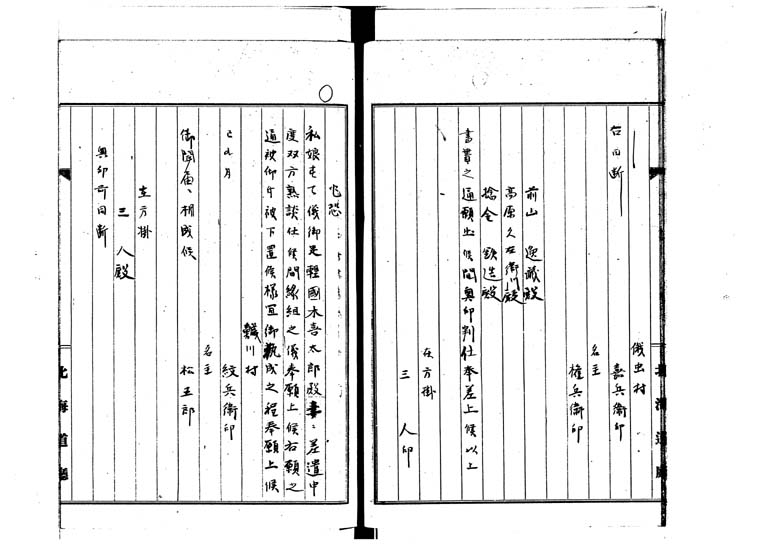 俄虫村
嘉兵衛印
名主
権兵衛印
前山
高原久左衛門殿
捨金 鉄造殿
書貫之通願出候間奥印判仕奉差上候以上
在方掛
三人印
乍恐
私娘もて儀御足軽國木善太郎殿妻ニ差遣申
度双方熟談仕候間縁組之儀奉願上候右願之
通被仰付被下置候様宜御執成之程奉願上候
川村
巳四月
紋兵衛印
名主
松五郎
御聞届ニ相成候
在方掛
三人殿
奥印前同断
北海道廳